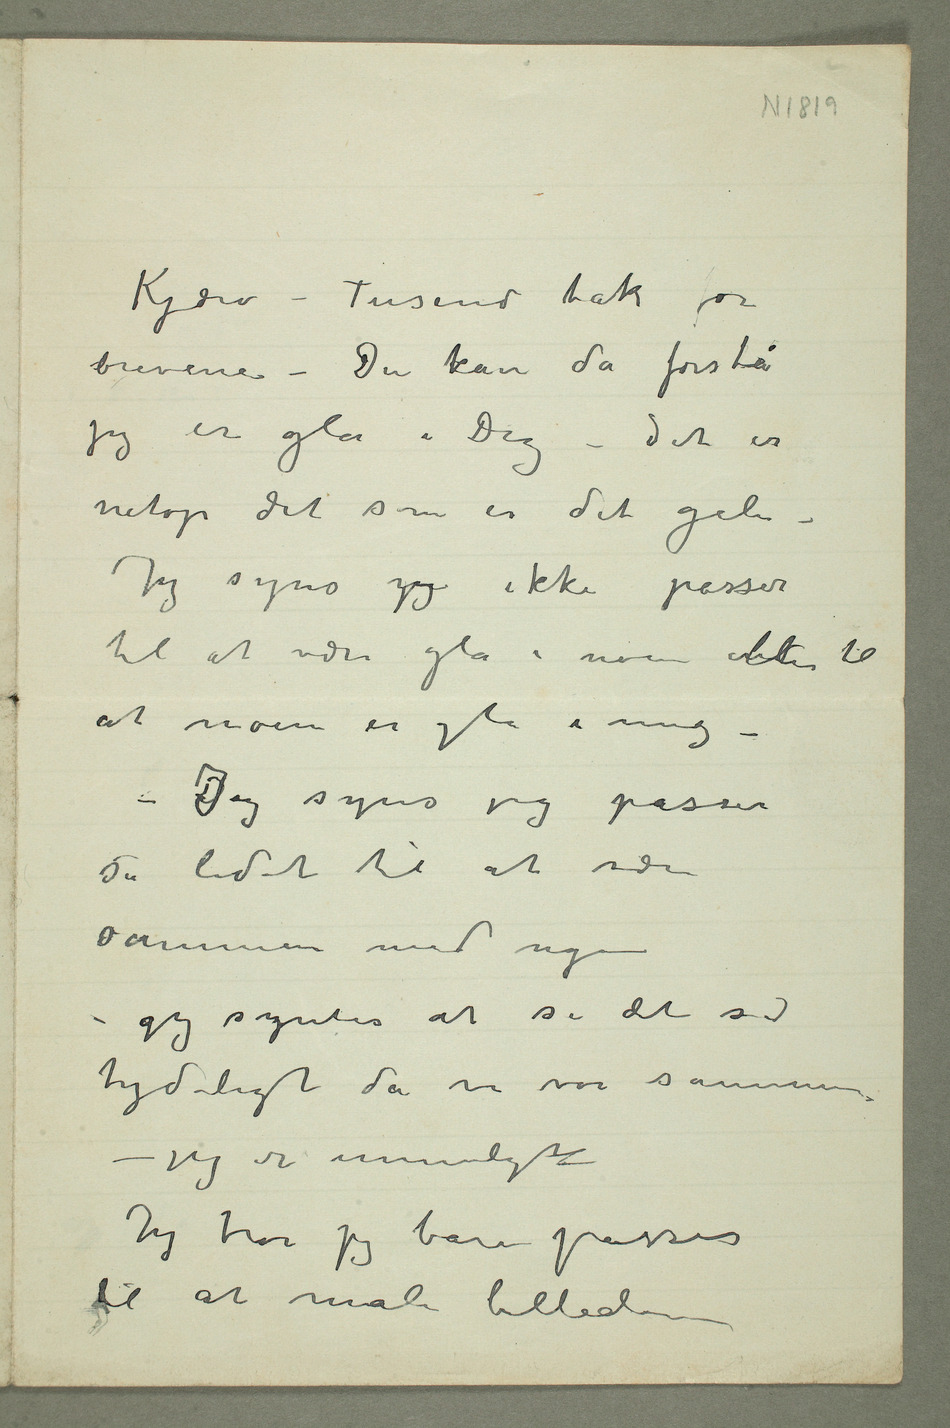 N 1819
Kjære – Tusend tak for
brevene – Du kan da forstå
jeg er gla i Dig – det er
netop det som er det gale –
Jeg synes jeg ikke passer
til at være gla i noen eller til
at noen er gla i mig –
– Jeg synes jeg passer
så lidet til at være
sammen med nogen
– jeg syntes at se det så
tydeligt da vi var sammen
– jeg er
Jeg tror jeg bare passer
til at male billeder